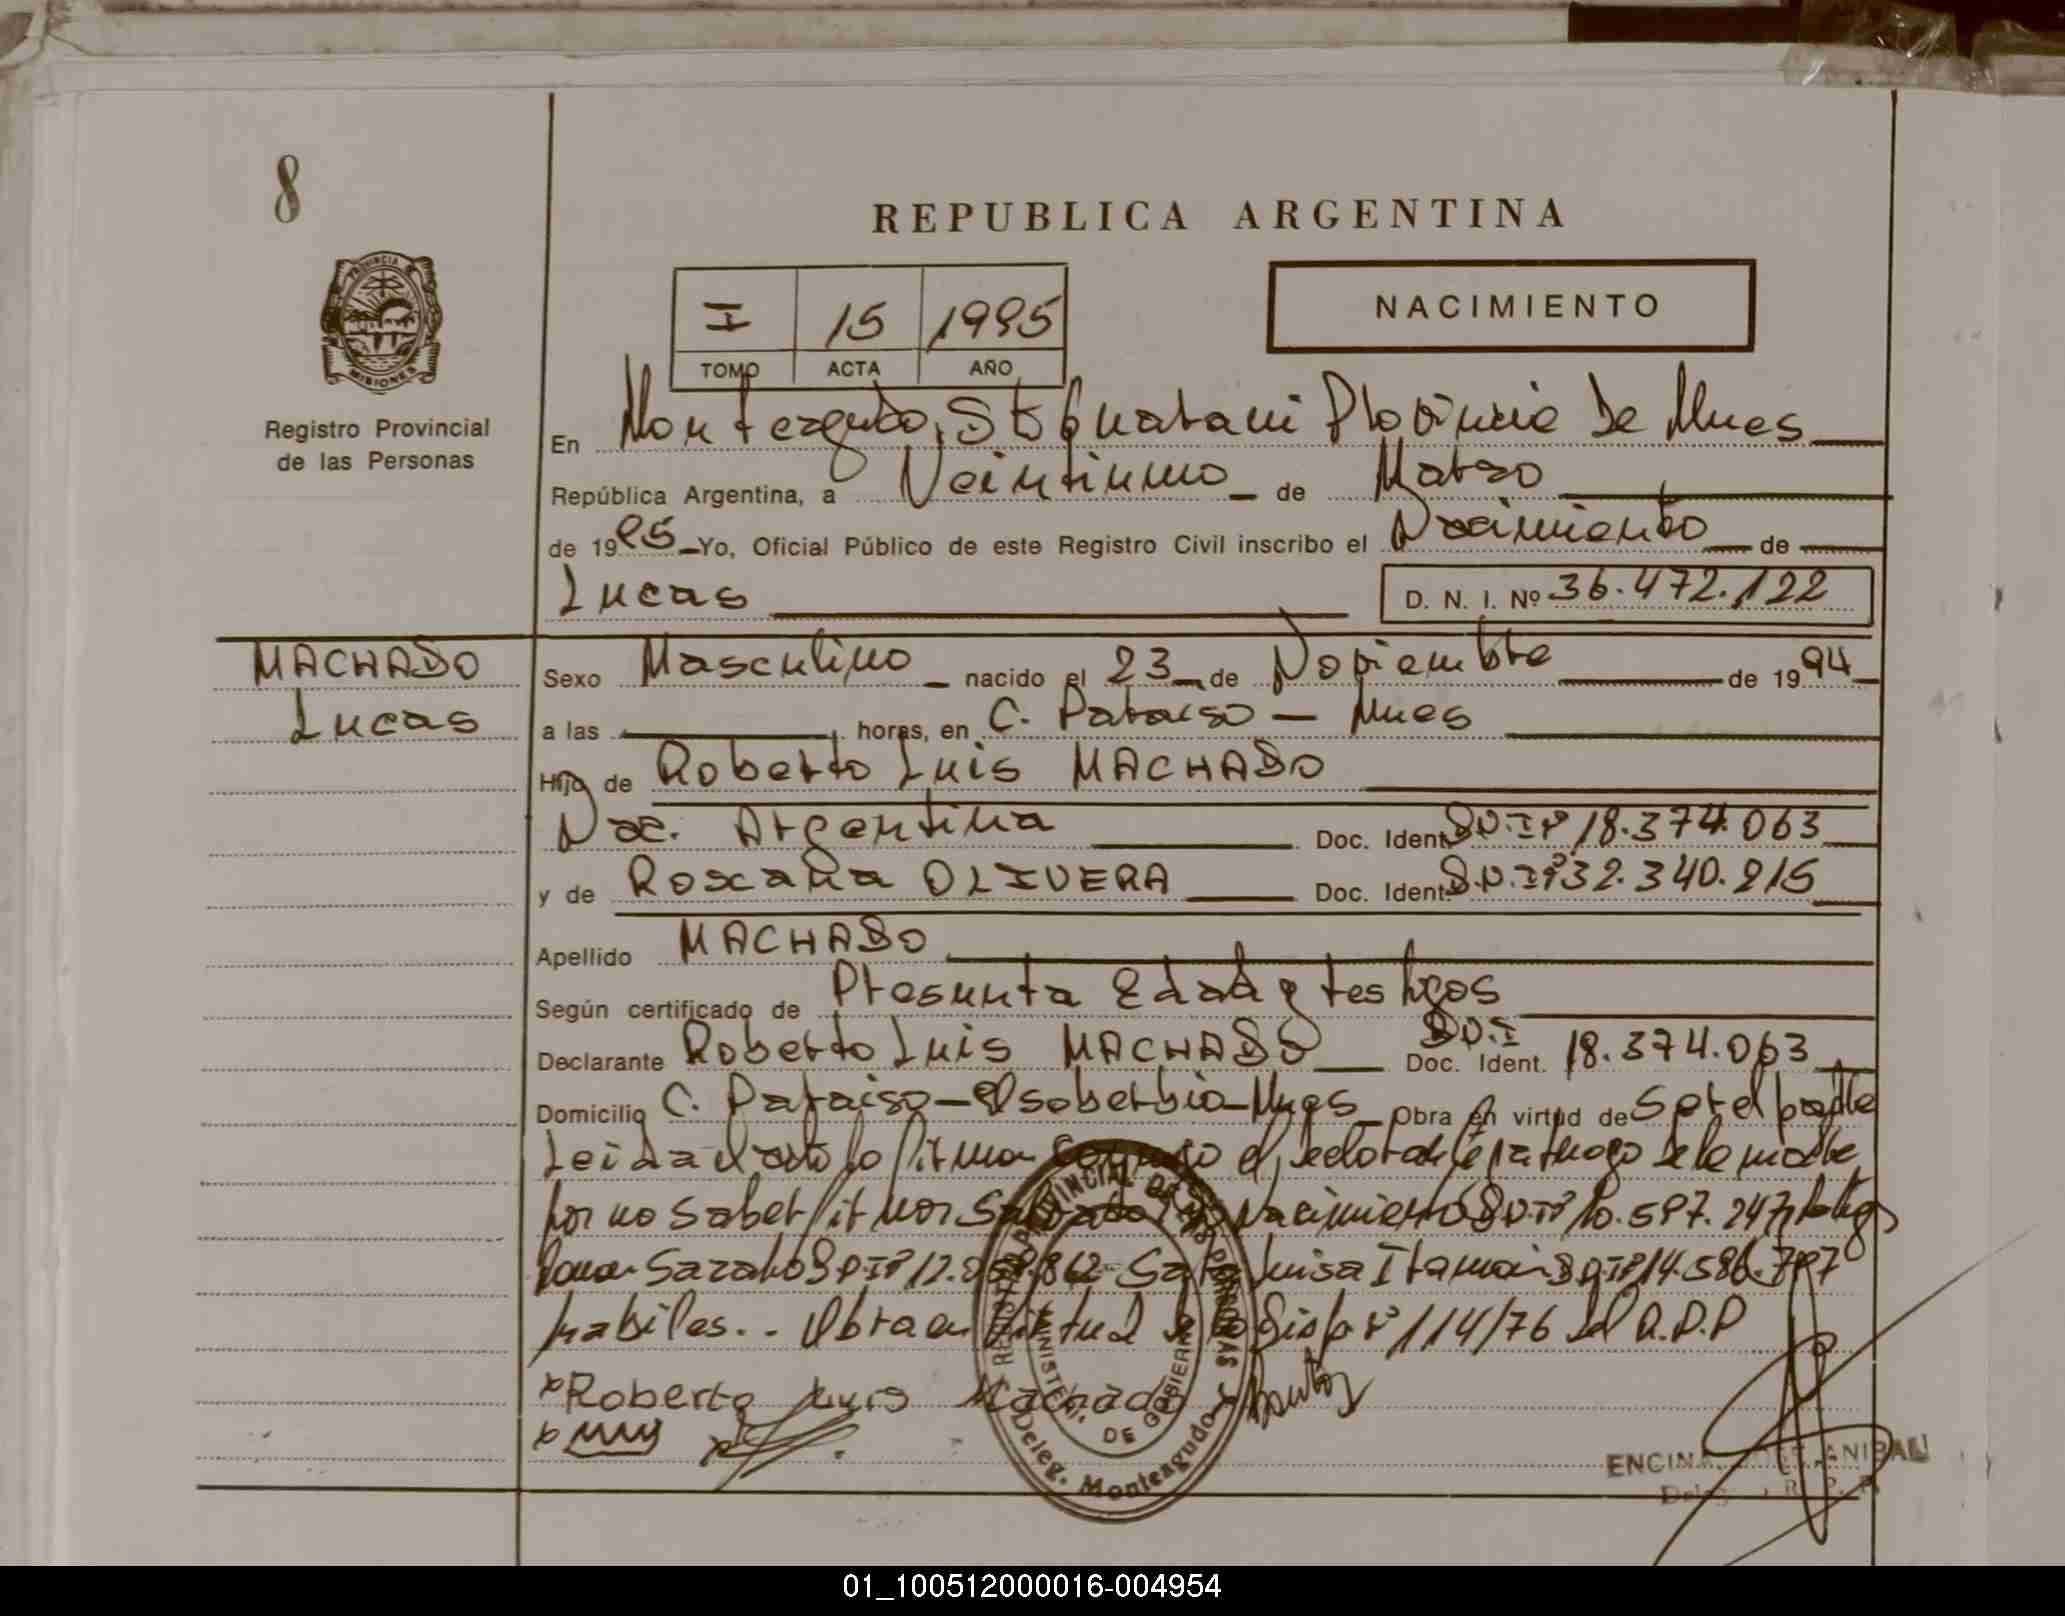 8
REPUBLICA ARGENTINA
PROVINCIA DE
MISIONES
Registro Provincial
de las Personas
I 15 1995
TOMO ACTA AÑO
NACIMIENTO
En Monteagudo, Dto Guaraní Provincia De Mnes
República Argentina, a Veintiuno de Marzo
de 1995 Yo, Oficial Público de este Registro Civil inscribo el Nacimiento de
Lucas D. N. I. Nº 36.472.122
MACHADO
Lucas
Sexo Masculino nacido el 23 de Noviembre de 1994
a las horas, en C. Paraiso - Mnes
Hijo de Roberto Luis MACHADO
Nac. Argentina Doc. Ident. D.N.Iº 18.374.063
y de Roscana OLIVERA Doc. Ident. D.N.Iº 32.340.215
Apellido MACHADO
Según certificado de Presunta Edad y testigos
Declarante Roberto Luis MACHADO Doc. Ident. D.N.I 18.374.063
Domicilio C. Paraiso - El soberbio - Mnes Obra en virtud de Ser el padre
Leida el acta lo firman conmigo el declarante a ruego de la madre
por no saber firmar Nacimiento D.N.Iº 10.597.247 testigos
D.N.Iº 12. 862 Luisa D.N.Iº 14.586.797
habiles.. Obra en virtud Disp Nº 114/76 del R.P.P
Roberto Luis Machado
REGISTRO PROVINCIAL DE LAS PERSONAS
MINISTERIO DE GOBIERNO
Deleg. Monteagudo
ENCINA ANIBAL
R. P. P.
01_100512000016-004954